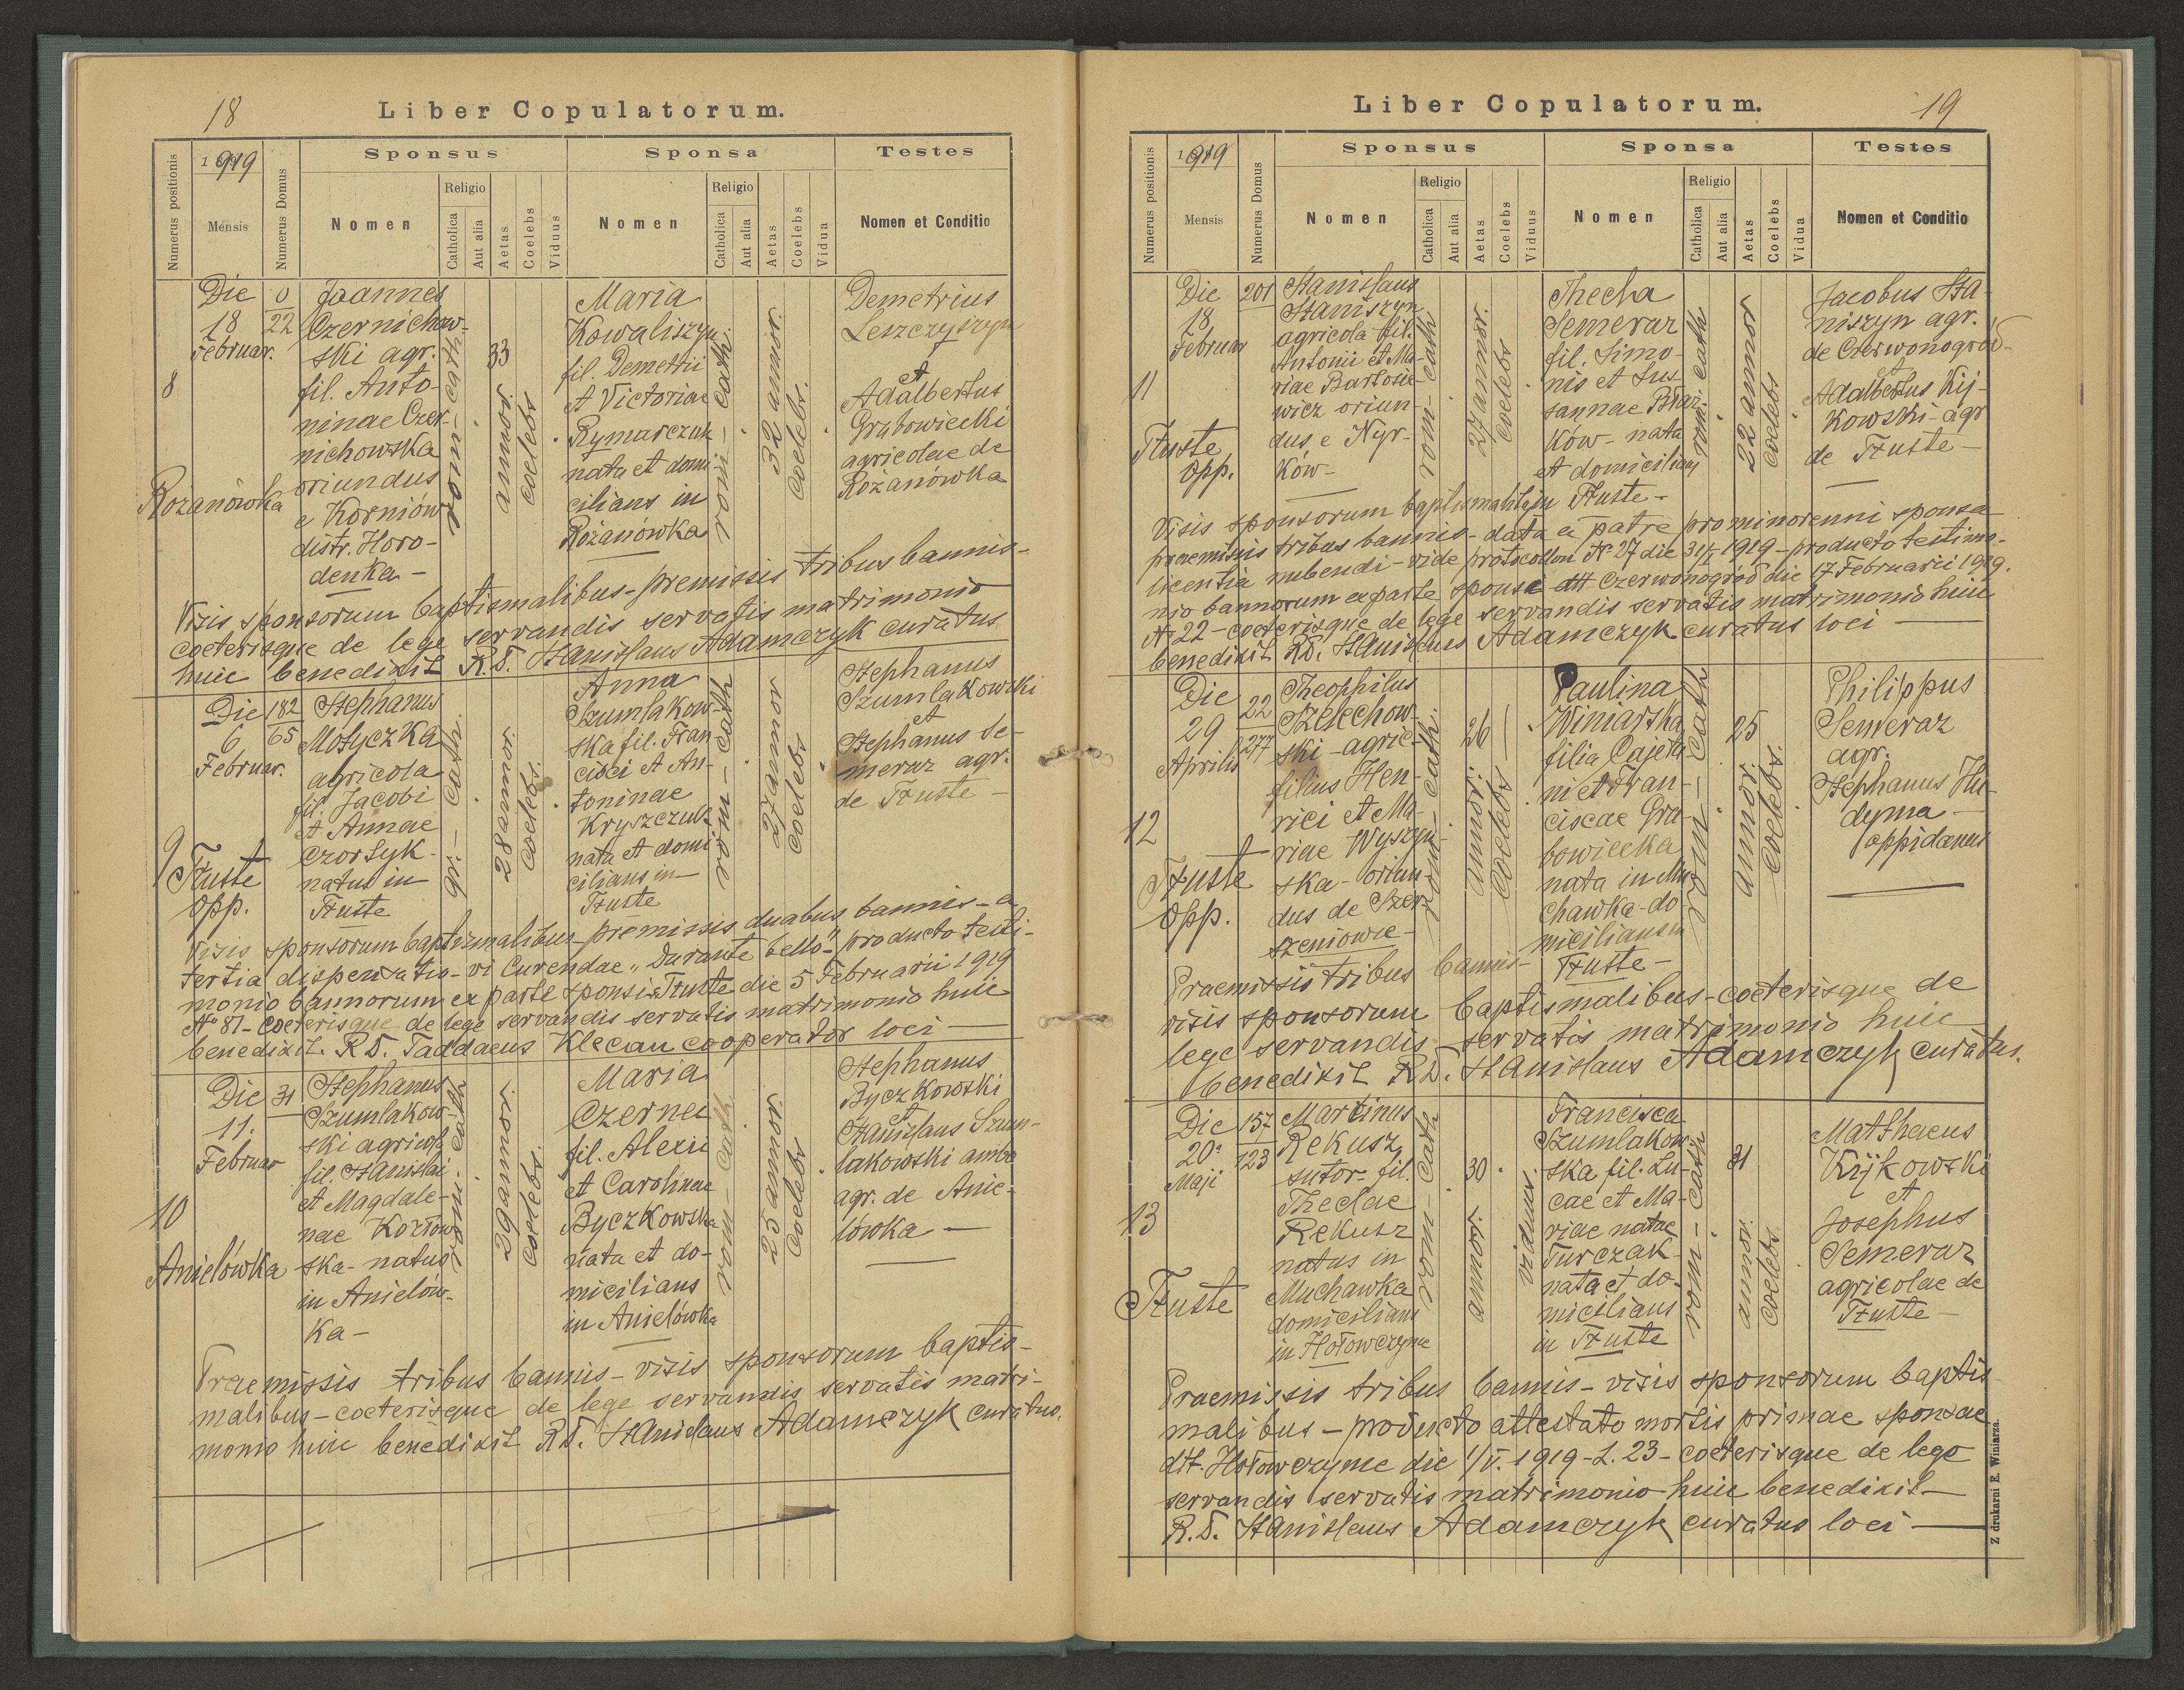 18
Liber Copulatorum.
1919
Numerus positionis
Mensis
Numerus Domus
Sponsus
Nomen
Religio
Catholica
Aut alia
Aetas
Coelebs
Viduus
Sponsa
Nomen
Religio
Catholica
Aut alia
Aetas
Coelebs
Vidua
Testes
Nomen et Conditio
8
Die
18
Februar.
Rozanówka
0
22
Joannes
Czernichow-
ski agr.
fil. Anto-
ninae Czer-
nichowska
oriundus
e Korniów
distr. Horo-
denka -
rom - cath.
33
annor.
coelebs
Maria
Kowaliszyn
fil. Demetrii
et Victoriae
Rymarczuk
nata et domi-
cilians in
Różanówka
rom - cath.
32 annor.
coelebs.
Demetrius
Leszczyszyn
et
Adalbertus
Grabowiecki
agricolae de
Rożanówka
Visis sponsorum baptismalibus - premissis tribus bannis -
coeterisque de lege servandis servatis matrimonio
huic benedixit R.D. Stanislaus Adamczyk curatus
9
Die
6
Februar.
Tłuste
Opp.
182
65
Stephanus
Motyczka
agricola
fil. Jacobi
et Annae
Czortyk -
natus in
Tłuste
gr. - cath.
28 annor.
coelebs.
Anna
Szumlakow-
ska fil. Fran-
cisci et An-
toninae
Kryszczuk
nata et domi-
cilians in
Tłuste
rom - cath
27 annor
coelebs
Stephanus
Szumlakowski
et
Stephanus Se-
meraz agr.
de Tłuste -
Visis sponsorum baptismalibus - premissis duabus bannis - a
tertia dispensatio - vi Curendae „Durante bello" - producto testi-
monio bannorum ex parte sponsi - Tłuste die 5 Februarii 1919
No 87 - coeterisque de lege servandis servatis matrimonio huic
benedixit. R.D. Taddaeus Klecan cooperator loci -
10
Die
11.
Februar
Anielówka
31
Stephanus
Szumlakow-
ski agricola
fil. Stanislai
et Magdale-
nae Kozłow-
ska - natus
in Anielów-
ka -
rom. cath
29 annor.
coelebs.
Maria
Czernec
fil. Alexii
et Carolinae
Byczkowska
nata et do-
micilians
in Anielówka
rom - cath
25 annor.
coelebs
Stephanus
Byczkowski
et
Stanislaus Szum-
lakowski ambo
agr. de Anie-
lówka -
Praemissis tribus bannis - visis sponsorum baptis-
malibus - coeterisque de lege servandis servatis matri-
monio huic benedixit R.D. Stanislaus Adamczyk curatus.
19
Liber Copulatorum.
1919
Numerus positionis
Mensis
Numerus Domus
Sponsus
Nomen
Religio
Catholica
Aut alia
Aetas
Coelebs
Viduus
Sponsa
Nomen
Religio
Catholica
Aut alia
Aetas
Coelebs
Vidua
Testes
Nomen et Conditio
11
Die
18
Februar
Tłuste
Opp.
201
Stanislaus
Staniszyn
agricola fil.
Antonii et Ma-
riae Bartosie-
wicz oriun-
dus e Nyr-
ków -
rom - cath
27 annor.
coelebs
Thecla
Semeraz
fil. Simo-
nis et Su-
sannae
ków - nata
et domicilians
rom. cath
22 annor
coelebs
Jacobus Sta-
niszyn agr.
de Czerwonogród -
et
Adalbertus Kij-
kowski - agr
de Tłuste -
Visis sponsorum baptismalibus in Tłuste -
praemissis tribus bannis - data a patre pro minorenni sponsa
licentia nubendi - vide protocollon No 27 die 31/I 1919 - producto testimo-
nio bannorum ex parte sponsi dtt Czerwonogród die 17 Februarii 1919.
No 22 - coeterisque de lege servandis servatis matrimonio huic
benedixit R.D. Stanislaus Adamczyk curatus loci -
12
Die
29
Aprilis
Tłuste
Opp.
22
277
Theophilus
Szelechow-
ski - agric.
filius Hen-
rici et Ma-
riae Wyszyn-
ska - oriun-
dus de Szer-
szeniowce -
rom - cath.
26
annor.
coelebs
Paulina
Winiarska
filia Cajeta-
ni et Fran-
ciscae Gra-
bowiecka
nata in Mu-
chawka - do
micilians in
Tłuste -
rom - cath
25
annor.
coelebs.
Philippus
Semeraz
agr.
Stephanus Hu-
dyma -
oppidanus
Praemissis tribus bannis -
visis sponsorum baptismalibus - coeterisque de
lege servandis servatis matrimonio huic
benedixit R.D. Stanislaus Adamczyk curatus.
13
Die
20a
Maji
Tłuste
157
123
Martinus
Rekusz
sutor - fil.
Theclae
Rekusz
natus in
Muchawka
domicilians
in Hołowczyńce
rom - cath
30
annor.
viduus.
Francisca
Szumlakow-
ska fil. Lu-
cae et Ma-
riae natae
Turczak -
nata et do-
micilians
in Tłuste
rom - cath
31
annor.
coelebs
Matthaeus
Kijkowski
et
Josephus
Semeraz
agricolae de
Tłuste -
Praemissis tribus bannis - visis sponsorum baptis
malibus - producto attestato mortis primae sponsae
dtt. Hołowczyńce die 1/V. 1919 - L. 23 - coeterisque de lege
servandis servatis matrimonio huic benedixit -
R.D. Stanislaus Adamczyk curatus loci -
Z drukarni E. Winiarza.